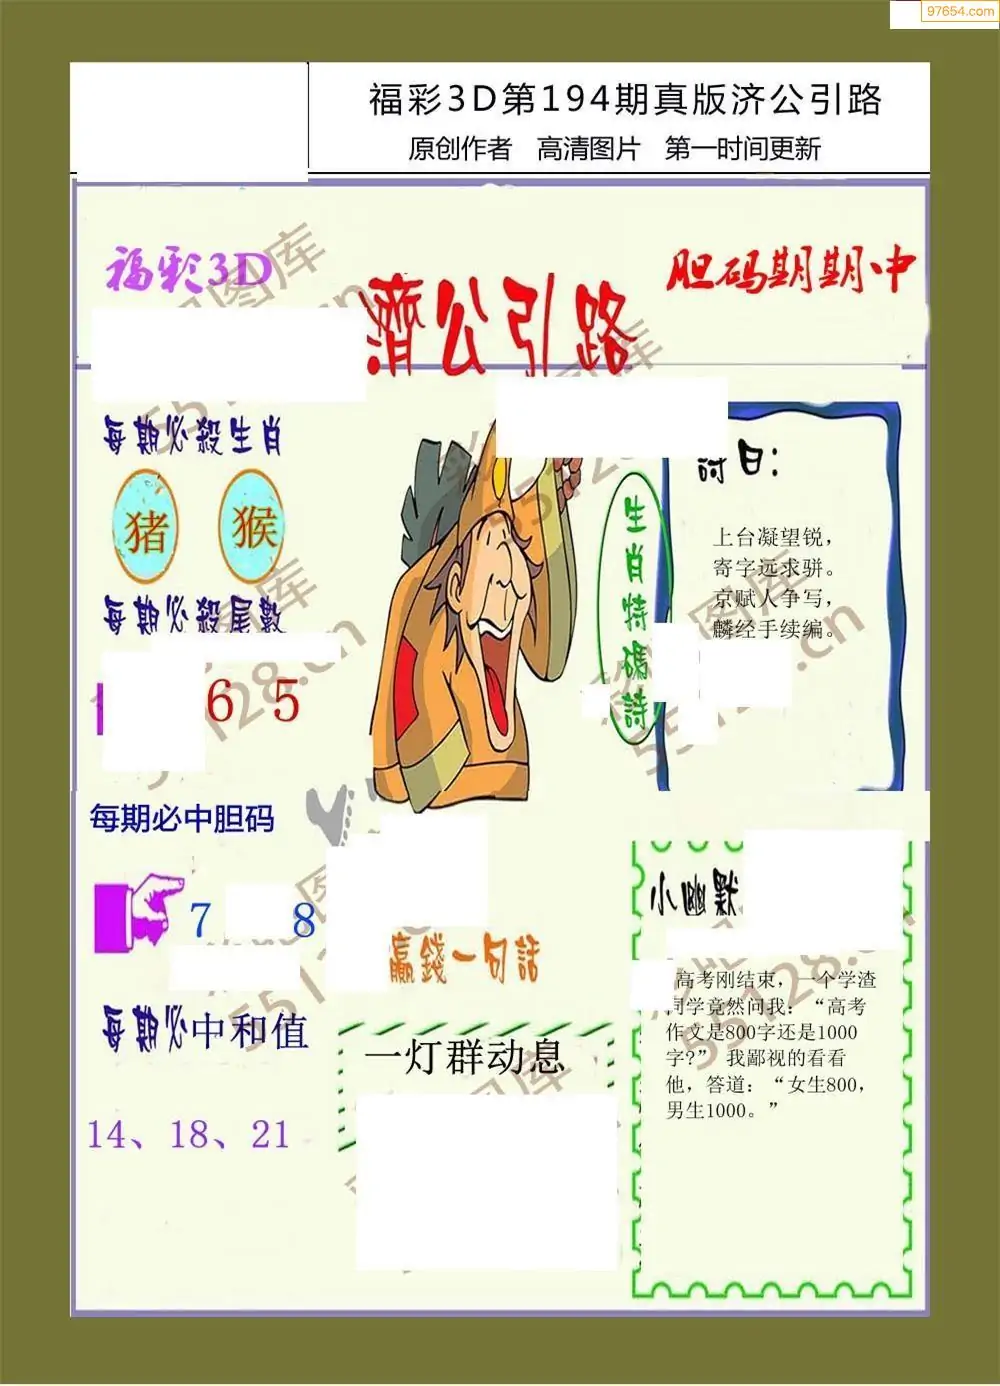 97654.com
福彩3D第194期真版济公引路
原创作者 高清图片 第一时间更新
福彩3D
胆码期期中
濟公引路
每期必殺生肖
猪 猴
每期必殺尾數
6 5
每期必中胆码
7 8
每期必中和值
14、18、21
生肖特碼詩
詩曰：
上台凝望锐，
寄字远求骈。
京赋人争写，
麟经手续编。
贏錢一句話
一灯群动息
小幽默
高考刚结束，一个学渣
同学竟然问我：“高考
作文是800字还是1000
字?” 我鄙视的看看
他，答道：“女生800，
男生1000。”
55128.cn